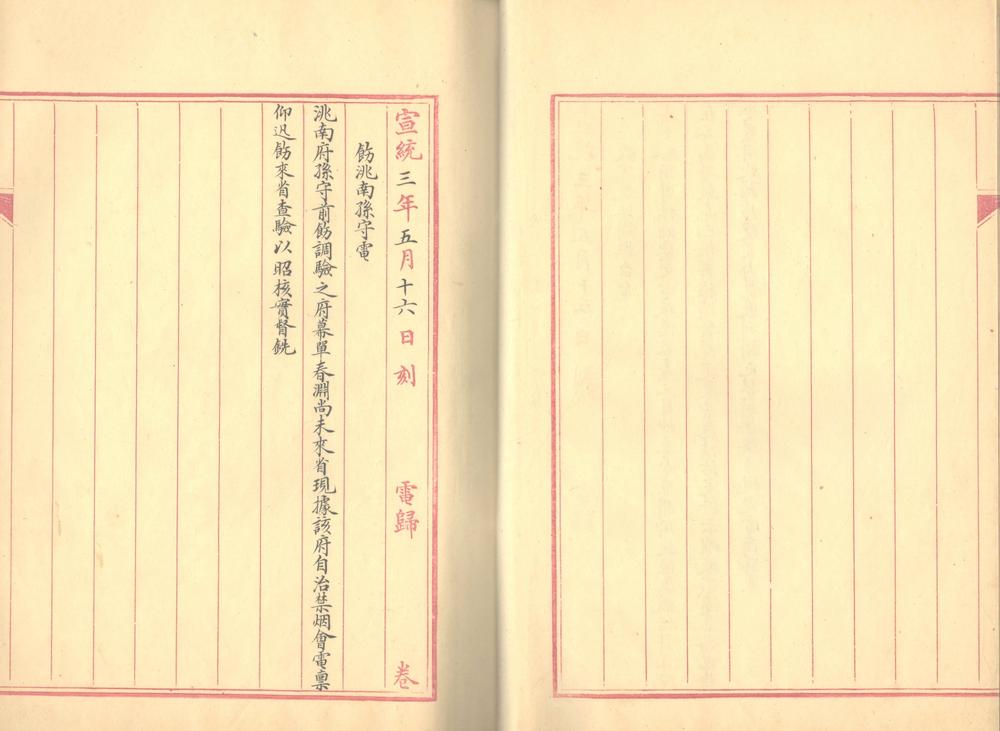 宣統三年五月十六日刻 電歸 卷
飭洮南孫守電
洮南府孫守前飭調驗之府幕單春淵尚未來省現據該府自治禁烟會電稟
仰迅飭來省查驗以昭核實督銑